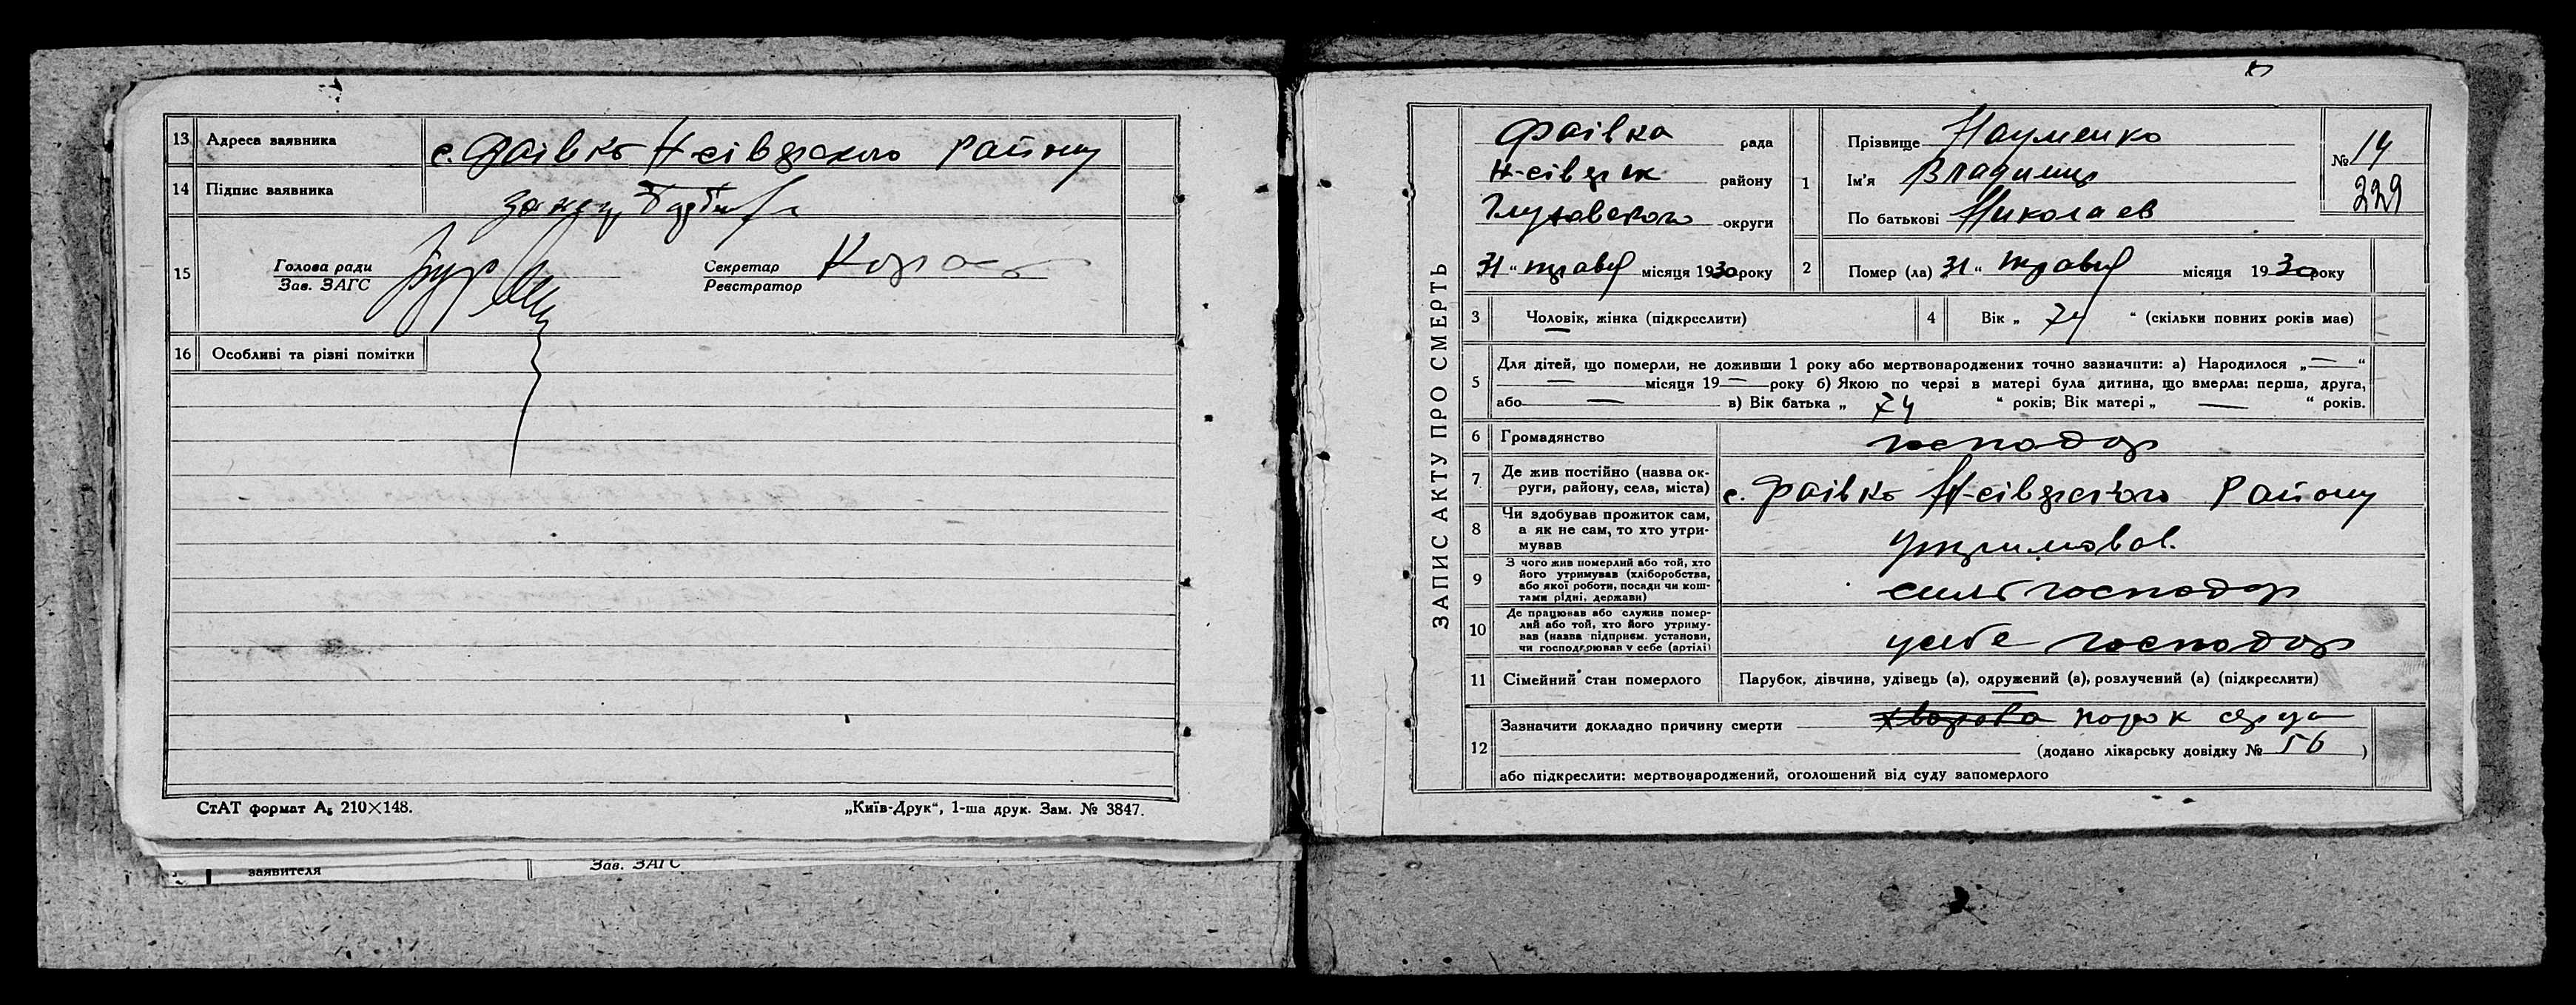 13 Адреса заявника с. Фаівка Н-сівдрского району
14 Підпис заявника
15 Голова ради
Зав. ЗАГС
Секретар
Реєстратор
16 Особливі та різні помітки
СтАТ формат А₅ 210×148.
„Київ-Друк“, 1-ша друк. Зам. № 3847.
заявителя
Зав. ЗАГС
ЗАПИС АКТУ ПРО СМЕРТЬ
Фаівка рада
Н-сівдрск району
Глуховского округи
31 “ травня місяця 1930 року
1 Прізвище Науменко
Ім'я Владимир
По батькові Николаев
№ 14
229
2 Помер (ла) 31 “ травня місяця 1930 року
3 Чоловік, жінка (підкреслити)
4 Вік „ 74 “ (скільки повних років має)
5 Для дітей, що померли, не доживши 1 року або мертвонароджених точно зазначити: а) Народилося „ — “
— місяця 19 — року б) Якою по черзі в матері була дитина, що вмерла: перша, друга,
або — в) Вік батька „ 74 “ років; Вік матері „ — “ років.
6 Громадянство господар
7 Де жив постійно (назва ок-
руги, району, села, міста) с. Фаівка Н-сівдрского Району
8 Чи здобував прожиток сам,
а як не сам, то хто утри-
мував утримовав.
9 З чого жив померлий або той, хто
його утримував (хліборобства,
або якої роботи, посади чи кош-
тами рідні, держави) сильгосподар
10 Де працював або служив помер-
лий або той, хто його утриму-
вав (назва підприєм. установи,
чи господарював у себе (артілі) усебе господар
11 Сімейний стан померлого Парубок, дівчина, удівець (а), одружений (а), розлучений (а) (підкреслити)
12 Зазначити докладно причину смерти хвороба порок серца
(додано лікарську довідку № 56 )
або підкреслити: мертвонароджений, оголошений від суду запомерлого